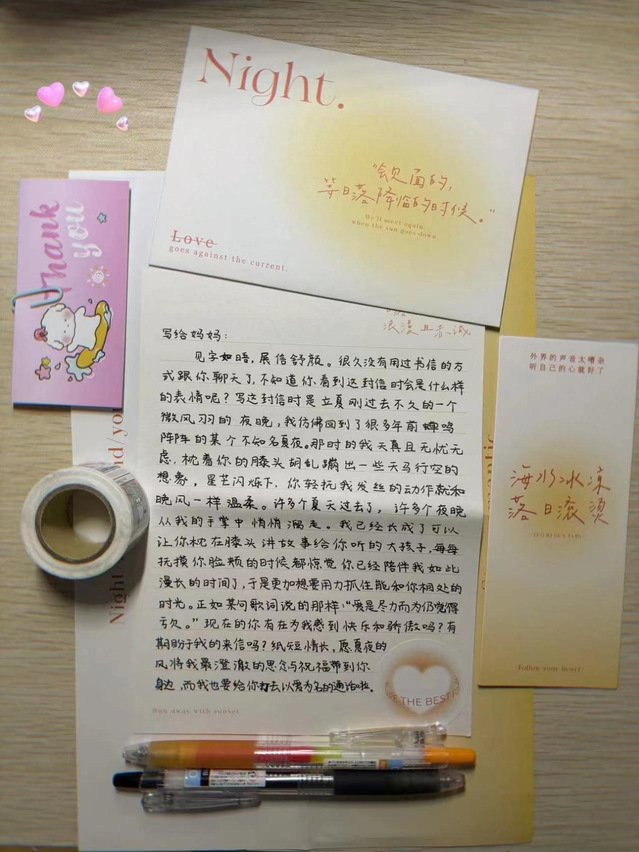 Night.
“会见面的,
等日落降临的时候。”
We'll meet again,
when the sun goes down.
Love
goes against the current.
Thank
you
浪漫且赤诚
写给妈妈:
见字如晤,展信舒颜。很久没有用过书信的方
式跟你聊天了,不知道你看到这封信时会是什么样
的表情呢?写这封信时是立夏刚过去不久的一个
微风羽的夜晚,我仿佛回到了很多年前蝉鸣
阵阵的某个不知名夏夜。那时的我天真且无忧无
虑,枕着你的膝头胡乱蹦出一些天马行空的
想象,星芒闪烁下,你轻抚我发丝的动作就和
晚风一样温柔。许多个夏天过去了,许多个夜晚
从我的手掌中悄悄溜走。我已经长成了可以
让你枕在膝头讲故事给你听的大孩子,每每
抚摸你脸颊的时候都惊觉你已经陪伴我如此
漫长的时间了,于是更加想要用力抓住能和你相处的
时光。正如某句歌词说的那样:“爱是尽力而为仍觉得
亏欠。”现在的你有在为我感到快乐和骄傲吗?有
期盼于我的来信吗?纸短情长,愿夏夜的
风将我最澄澈的思念与祝福带到你
身边,而我也要给你打去以爱为名的通话啦。
Run away with sunset
THE BEST
外界的声音太嘈杂
听自己的心就好了
海水冰凉
落日滚烫
Follow your heart!
Night